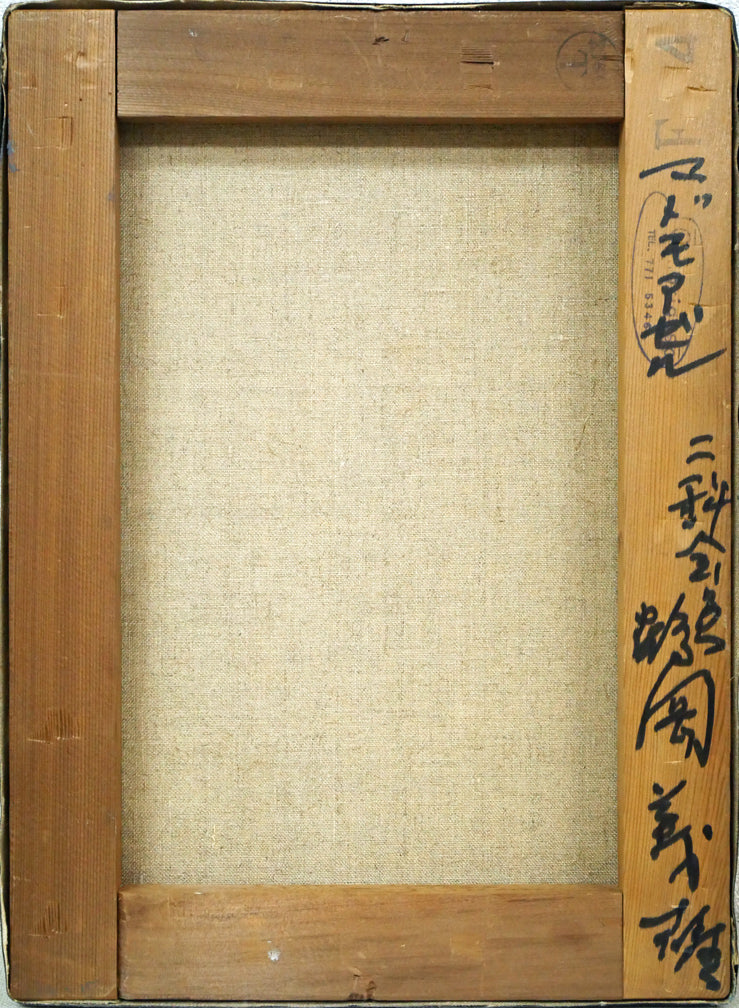 F 4
マドモアゼル
二科会員
鶴岡義雄
TEL. 771